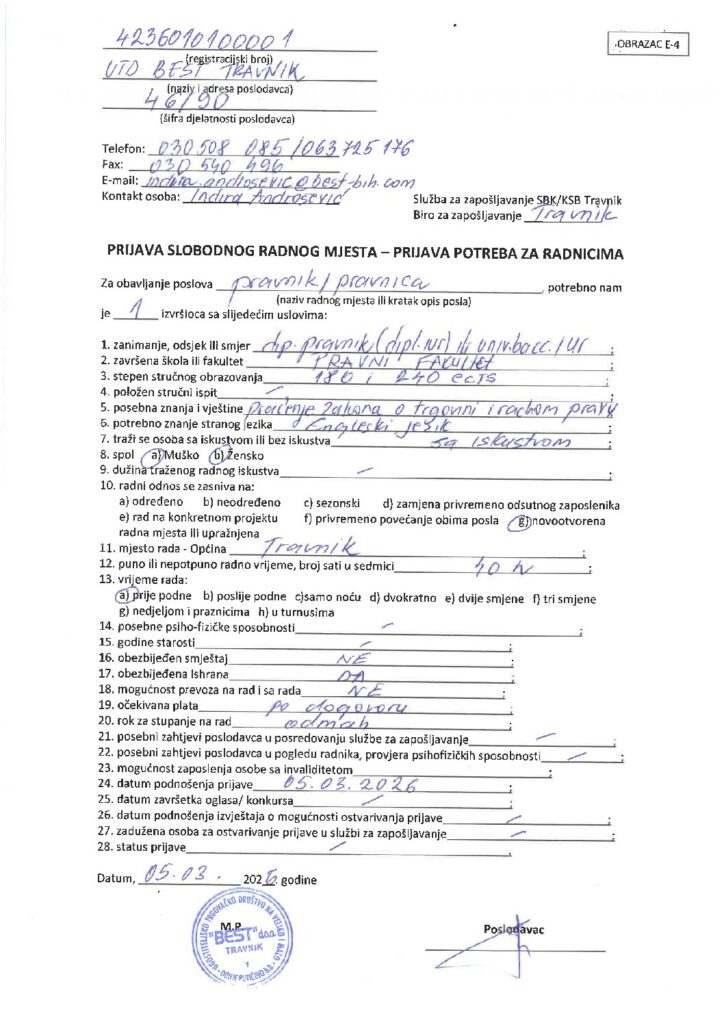 4236010100001
OBRAZAC E-4
(registracijski broj)
UTD BEST TRAVNIK
(naziv i adresa poslodavca)
46/90
(šifra djelatnosti poslodavca)
Telefon: 030 508 085 / 063 725 176
Fax: 030 540 496
E-mail: indira.androsevic@best-bih.com
Kontakt osoba: Indira Androsević
Služba za zapošljavanje SBK/KSB Travnik
Biro za zapošljavanje Travnik
PRIJAVA SLOBODNOG RADNOG MJESTA – PRIJAVA POTREBA ZA RADNICIMA
Za obavljanje poslova pravnik/pravnica, potrebno nam
(naziv radnog mjesta ili kratak opis posla)
je 1 izvršioca sa slijedećim uslovima:
1. zanimanje, odsjek ili smjer dip. pravnik (dipl.iur) ili univ.bacc.iur;
2. završena škola ili fakultet PRAVNI FAKULTET;
3. stepen stručnog obrazovanja 180 i 240 ects;
4. položen stručni ispit -;
5. posebna znanja i vještine praćenje zakona o trgovini i radnom pravu
6. potrebno znanje stranog jezika Engleski jezik;
7. traži se osoba sa iskustvom ili bez iskustva sa iskustvom;
8. spol a) Muško b) Žensko
9. dužina traženog radnog iskustva -;
10. radni odnos se zasniva na:
a) određeno b) neodređeno c) sezonski d) zamjena privremeno odsutnog zaposlenika
e) rad na konkretnom projektu f) privremeno povećanje obima posla g) novootvorena
radna mjesta ili upražnjena
11. mjesto rada - Općina Travnik;
12. puno ili nepotpuno radno vrijeme, broj sati u sedmici 40 h;
13. vrijeme rada:
a) prije podne b) poslije podne c)samo noću d) dvokratno e) dvije smjene f) tri smjene
g) nedjeljom i praznicima h) u turnusima
14. posebne psiho-fizičke sposobnosti -;
15. godine starosti -;
16. obezbijeđen smještaj NE;
17. obezbijeđena ishrana DA;
18. mogućnost prevoza na rad i sa rada NE;
19. očekivana plata po dogovoru;
20. rok za stupanje na rad odmah;
21. posebni zahtjevi poslodavca u posredovanju službe za zapošljavanje -;
22. posebni zahtjevi poslodavca u pogledu radnika, provjera psihofizičkih sposobnosti -;
23. mogućnost zaposlenja osobe sa invaliditetom;
24. datum podnošenja prijave 05.03.2026;
25. datum završetka oglasa/ konkursa -;
26. datum podnošenja izvještaja o mogućnosti ostvarivanja prijave -;
27. zadužena osoba za ostvarivanje prijave u službi za zapošljavanje -;
28. status prijave -;
Datum, 05.03. 2026. godine
M.P.
"BEST" d.o.o.
TRAVNIK
1
Poslodavac